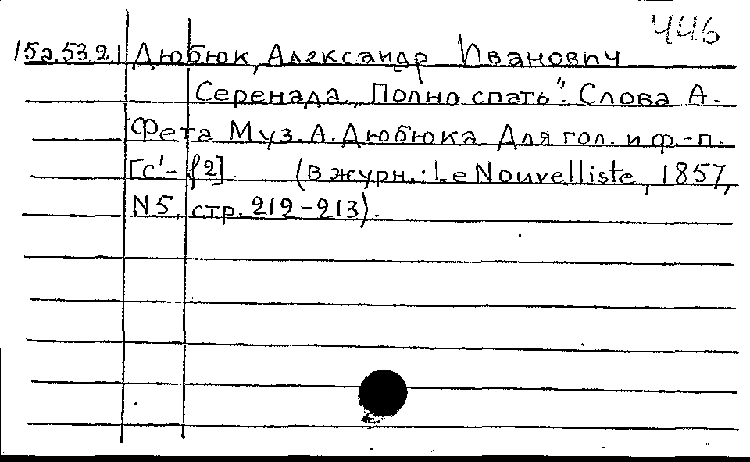 446
15а.53.21 Дюбюк, Александр Иванович
Серенада „Полно спать". Слова А.
Фета Муз. А. Дюбюка Для гол. и ф.-п.
[c'-f2] (в журн.: Le Nouvelliste, 1857,
N5, стр. 212-213).